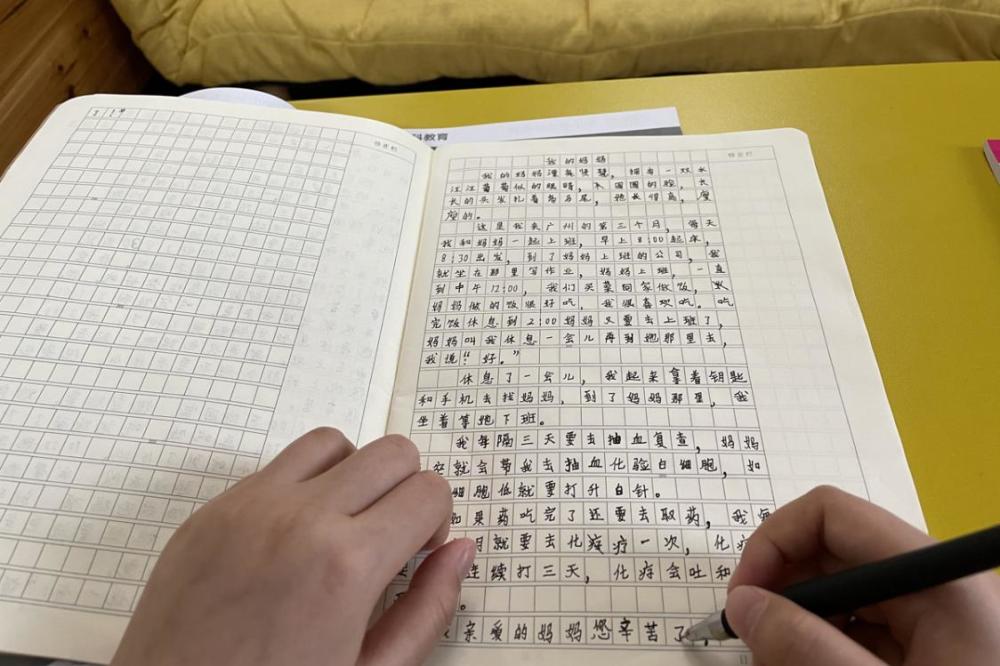 3.1单
修改栏
科教育
修改栏
我的妈妈
我的妈妈漂亮贤慧，拥有一双水
汪汪葡萄似的眼睛，圆圆的脸，长
长的头发扎着高马尾，她长得高，瘦
瘦的。
这是我来广州的第三个月，每天
我和妈妈一起上班，早上8:00起床，
8:30出发，到了妈妈上班的公司，我
就坐在那里写作业，妈妈上班，一直
到中午12:00，我们买菜回家做饭，
妈妈做的饭很好吃，我很喜欢吃。吃
完饭休息到2:00妈妈又要去上班了，
妈妈叫我休息一会儿再到她那里去，
我说“好。”
休息了一会儿，我起来拿着钥匙
和手机去找妈妈，到了妈妈那里，我
坐着等她下班。
我每隔三天要去抽血复查，妈妈
就会带我去抽血化验白细胞，如
细胞低就要打升白针。
如果药吃完了还要去取药，我每
月就要去化疗一次，化疗
连续打三天，化疗会吐和
。
亲爱的妈妈您辛苦了，